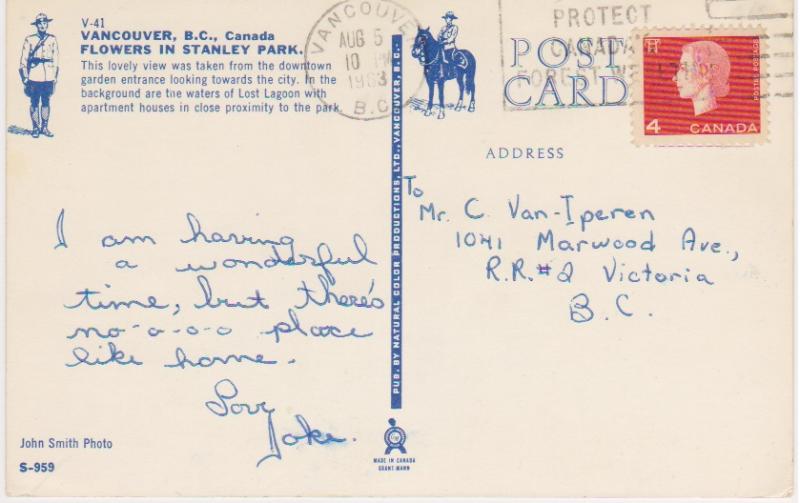 V-41
VANCOUVER, B.C., Canada
FLOWERS IN STANLEY PARK.
This lovely view was taken from the downtown
garden entrance looking towards the city. In the
background are the waters of Lost Lagoon with
apartment houses in close proximity to the park.
I am having
a wonderful
time, but there's
no-o-o-o place
like home.
Love
Joke.
John Smith Photo
S-959
PUB. BY NATURAL COLOR PRODUCTIONS, LTD., VANCOUVER, B.C.
MADE IN CANADA
GRANT-MANN
VANCOUVER
AUG 5
10 PM
1963
B.C.
PROTECT
CANADA'
FOREST
POST
CARD
4 CANADA
ADDRESS
To
Mr. C. Van-Iperen
1041 Marwood Ave.,
R.R.#2 Victoria
B.C.